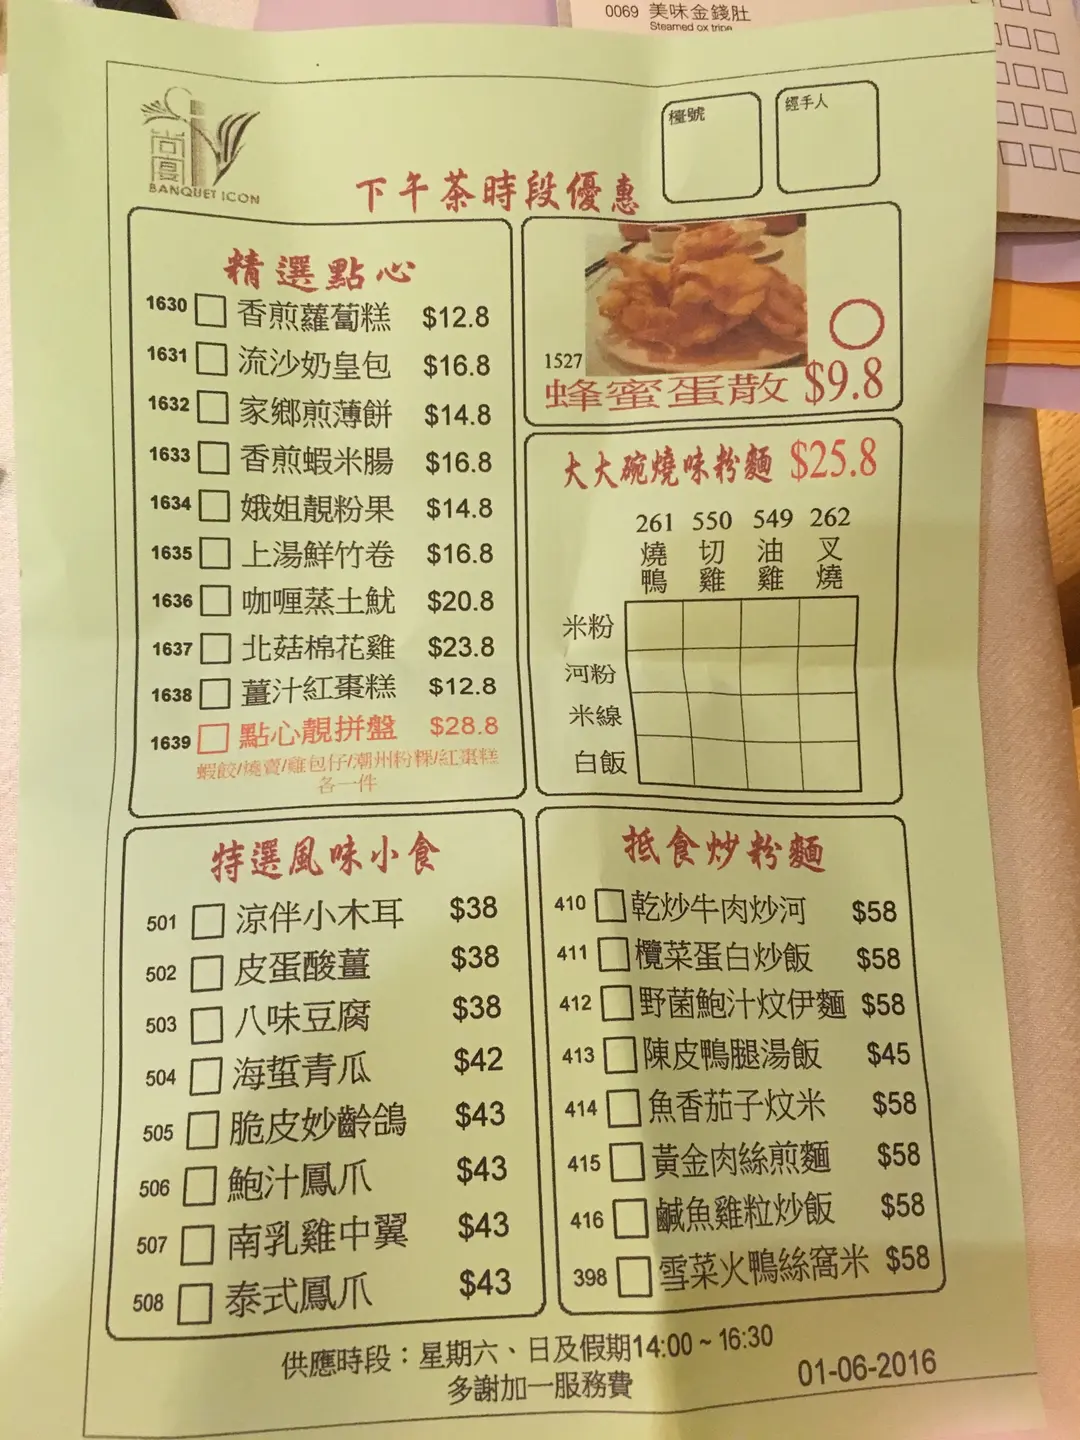 0069 美味金錢肚
Steamed ox tripe
尚宴
BANQUET ICON
下午茶時段優惠
檯號
經手人
精選點心
1630 香煎蘿蔔糕 $12.8
1631 流沙奶皇包 $16.8
1632 家鄉煎薄餅 $14.8
1633 香煎蝦米腸 $16.8
1634 娥姐靚粉果 $14.8
1635 上湯鮮竹卷 $16.8
1636 咖喱蒸土魷 $20.8
1637 北菇棉花雞 $23.8
1638 薑汁紅棗糕 $12.8
1639 點心靚拼盤 $28.8
蝦餃/燒賣/雞包仔/潮州粉粿/紅棗糕
各一件
1527
蜂蜜蛋散 $9.8
大大碗燒味粉麵 $25.8
261 550 549 262
燒鴨 切雞 油雞 叉燒
米粉
河粉
米線
白飯
特選風味小食
501 涼伴小木耳 $38
502 皮蛋酸薑 $38
503 八味豆腐 $38
504 海蜇青瓜 $42
505 脆皮妙齡鴿 $43
506 鮑汁鳳爪 $43
507 南乳雞中翼 $43
508 泰式鳳爪 $43
抵食炒粉麵
410 乾炒牛肉炒河 $58
411 欖菜蛋白炒飯 $58
412 野菌鮑汁炆伊麵 $58
413 陳皮鴨腿湯飯 $45
414 魚香茄子炆米 $58
415 黃金肉絲煎麵 $58
416 鹹魚雞粒炒飯 $58
398 雪菜火鴨絲窩米 $58
供應時段：星期六、日及假期14:00 ~ 16:30
多謝加一服務費
01-06-2016